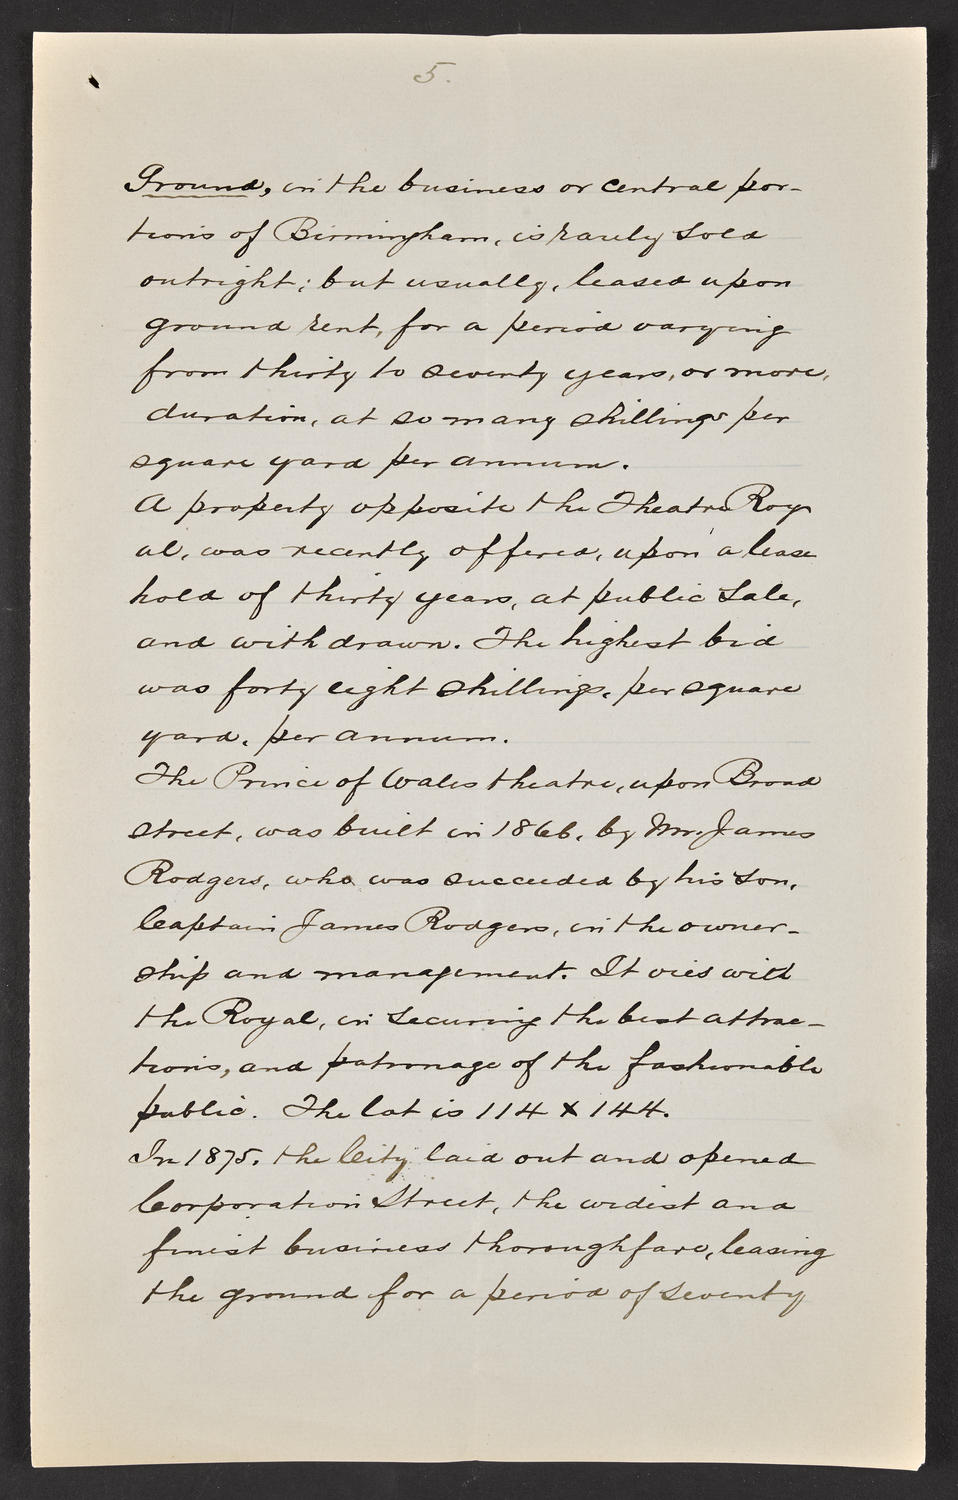 5.
Ground, in the business or central por-
tions of Birmingham, is rarely sold
outright; but usually, leased upon
ground rent, for a period varying
from thirty to seventy years, or more,
duration, at so many shillings per
square yard per annum.
A property opposite the Theatre Roy
al, was recently offered, upon a lease
hold of thirty years, at public sale,
and withdrawn. The highest bid
was forty eight shillings, per square
yard, per annum.
The Prince of Wales theatre, upon Broad
street, was built in 1866, by Mr. James
Rodgers, who was succeeded by his son,
Captain James Rodgers, in the owner-
ship and management. It vies with
the Royal, in securing the best attrac-
tions, and patronage of the fashionable
public. The lot is 114 x 144.
In 1875, the City laid out and opened
Corporation Street, the widest and
finest business thoroughfare, leasing
the ground for a period of seventy